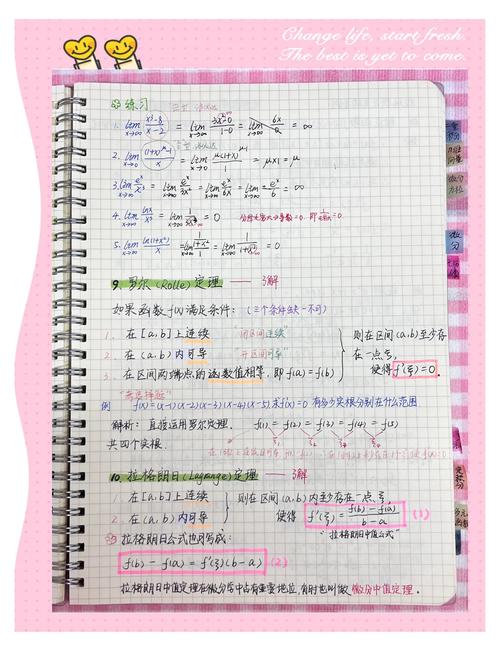 Change life, start fresh.
The best is yet to come.
练习
1. lim x→∞ (x³-8)/(x-2) = lim x→∞ (3x²-0)/(1-0) = lim x→∞ 6x/0 = ∞
2. lim x→0 ((1+x)^μ-1)/x = lim x→0 μ(1+x)^(μ-1)/1 = μx1 = μ
3. lim x→∞ e^x/x³ = lim x→∞ e^x/3x² = lim x→∞ e^x/6x = lim x→∞ e^x/6 = ∞
4. lim x→∞ lnx/x = lim x→∞ = 0
5. lim x→∞ = 0
9. 罗尔(Rolle)定理 —— 了解
如果函数f(x)满足条件: (三个条件缺一不可)
1. 在[a,b]上连续 "闭区间连续"
2. 在(a,b)内可导 "开区间可导"
3. 在区间两端点的函数值相等, 即f(a)=f(b)
则在区间(a,b)至少存
在一点ξ,
使得f'(ξ)=0.
例 f(x)=(x-1)(x-2)(x-3)(x-4)(x-5) 求f'(x)=0有多少实根分别在什么范围
解析: 直接运用罗尔定理. f(1)=f(2)=f(3)=f(4)=f(5)
共四个实根.
10. 拉格朗日(Lagrange)定理 —— 了解
1. 在[a,b]上连续
2. 在(a,b)内可导
则在区间(a,b)内至少存在一点ξ,
使得 f'(ξ)=(f(b)-f(a))/(b-a) (1)
"拉格朗日中值公式"
拉格朗日公式也可写成:
f(b)-f(a)=f'(ξ)(b-a) (2)
拉格朗日中值定理在微分学中占有重要地位,有时也叫做微分中值定理.